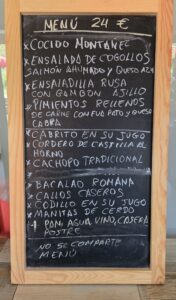 MENÚ 24 €
* COCIDO MONTAÑES
* ENSALADA DE COGOLLOS
SALMÓN AHUMADO Y QUESO AZA
* ENSALADILLA RUSA
CON GAMBON AJILLO
* PIMIENTOS RELLENOS
DE CARNE CON Y QUESO
CABRA
* CABRITO EN SU JUGO
* CORDERO DE CASTILLA AL
HORNO
* CACHOPO TRADICIONAL
* BACALAO ROMANA
* CALLOS CASEROS
* CODILLO EN SU JUGO
* MANITAS DE CERDO
PAN, AGUA, VINO, CASERA
POSTRE
NO SE COMPARTE
MENÚ